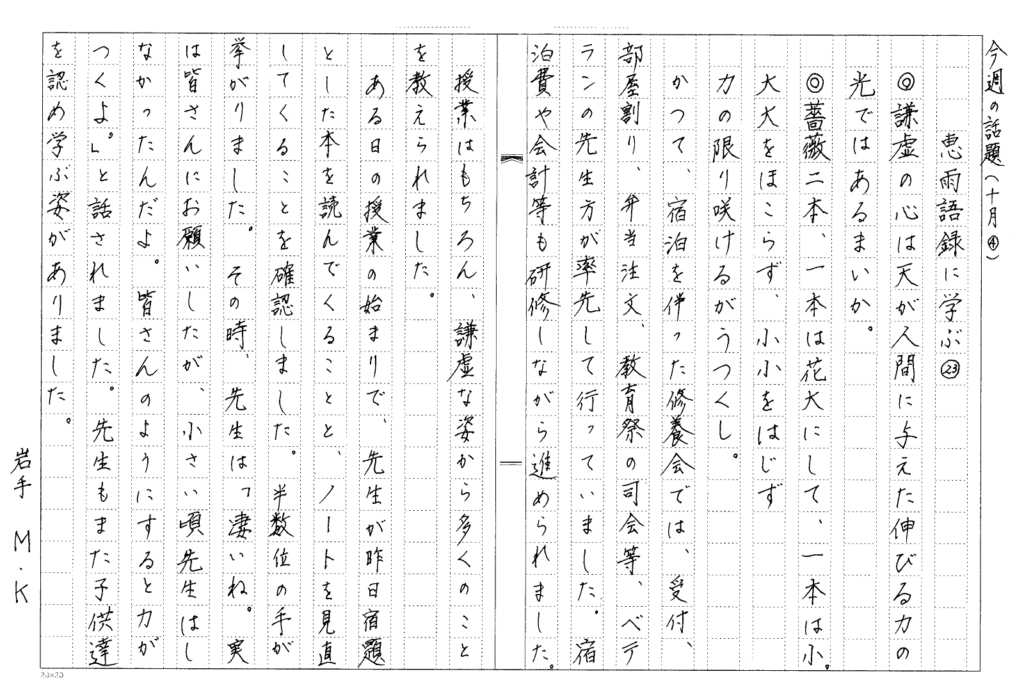 今週の話題(十月④)
恵雨語録に学ぶ㉓
◎謙虚の心は天が人間に与えた伸びる力の
光ではあるまいか。
◎薔薇二本、一本は花大にして、一本は小。
大大をほこらず、小小をはじず
力の限り咲けるがうつくし。
かつて、宿泊を伴った修養会では、受付、
部屋割り、弁当注文、教育祭の司会等、ベテ
ランの先生方が率先して行っていました。宿
泊費や会計等も研修しながら進められました。
授業はもちろん、謙虚な姿から多くのこと
を教えられました。
ある日の授業の始まりで、先生が昨日宿題
とした本を読んでくることと、ノートを見直
してくることを確認しました。半数位の手が
挙がりました。その時、先生は「凄いね。実
は皆さんにお願いしたが、小さい頃先生はし
なかったんだよ。皆さんのようにすると力が
つくよ。」と話されました。先生もまた子供達
を認め学ぶ姿がありました。
岩手 M.K
20×20